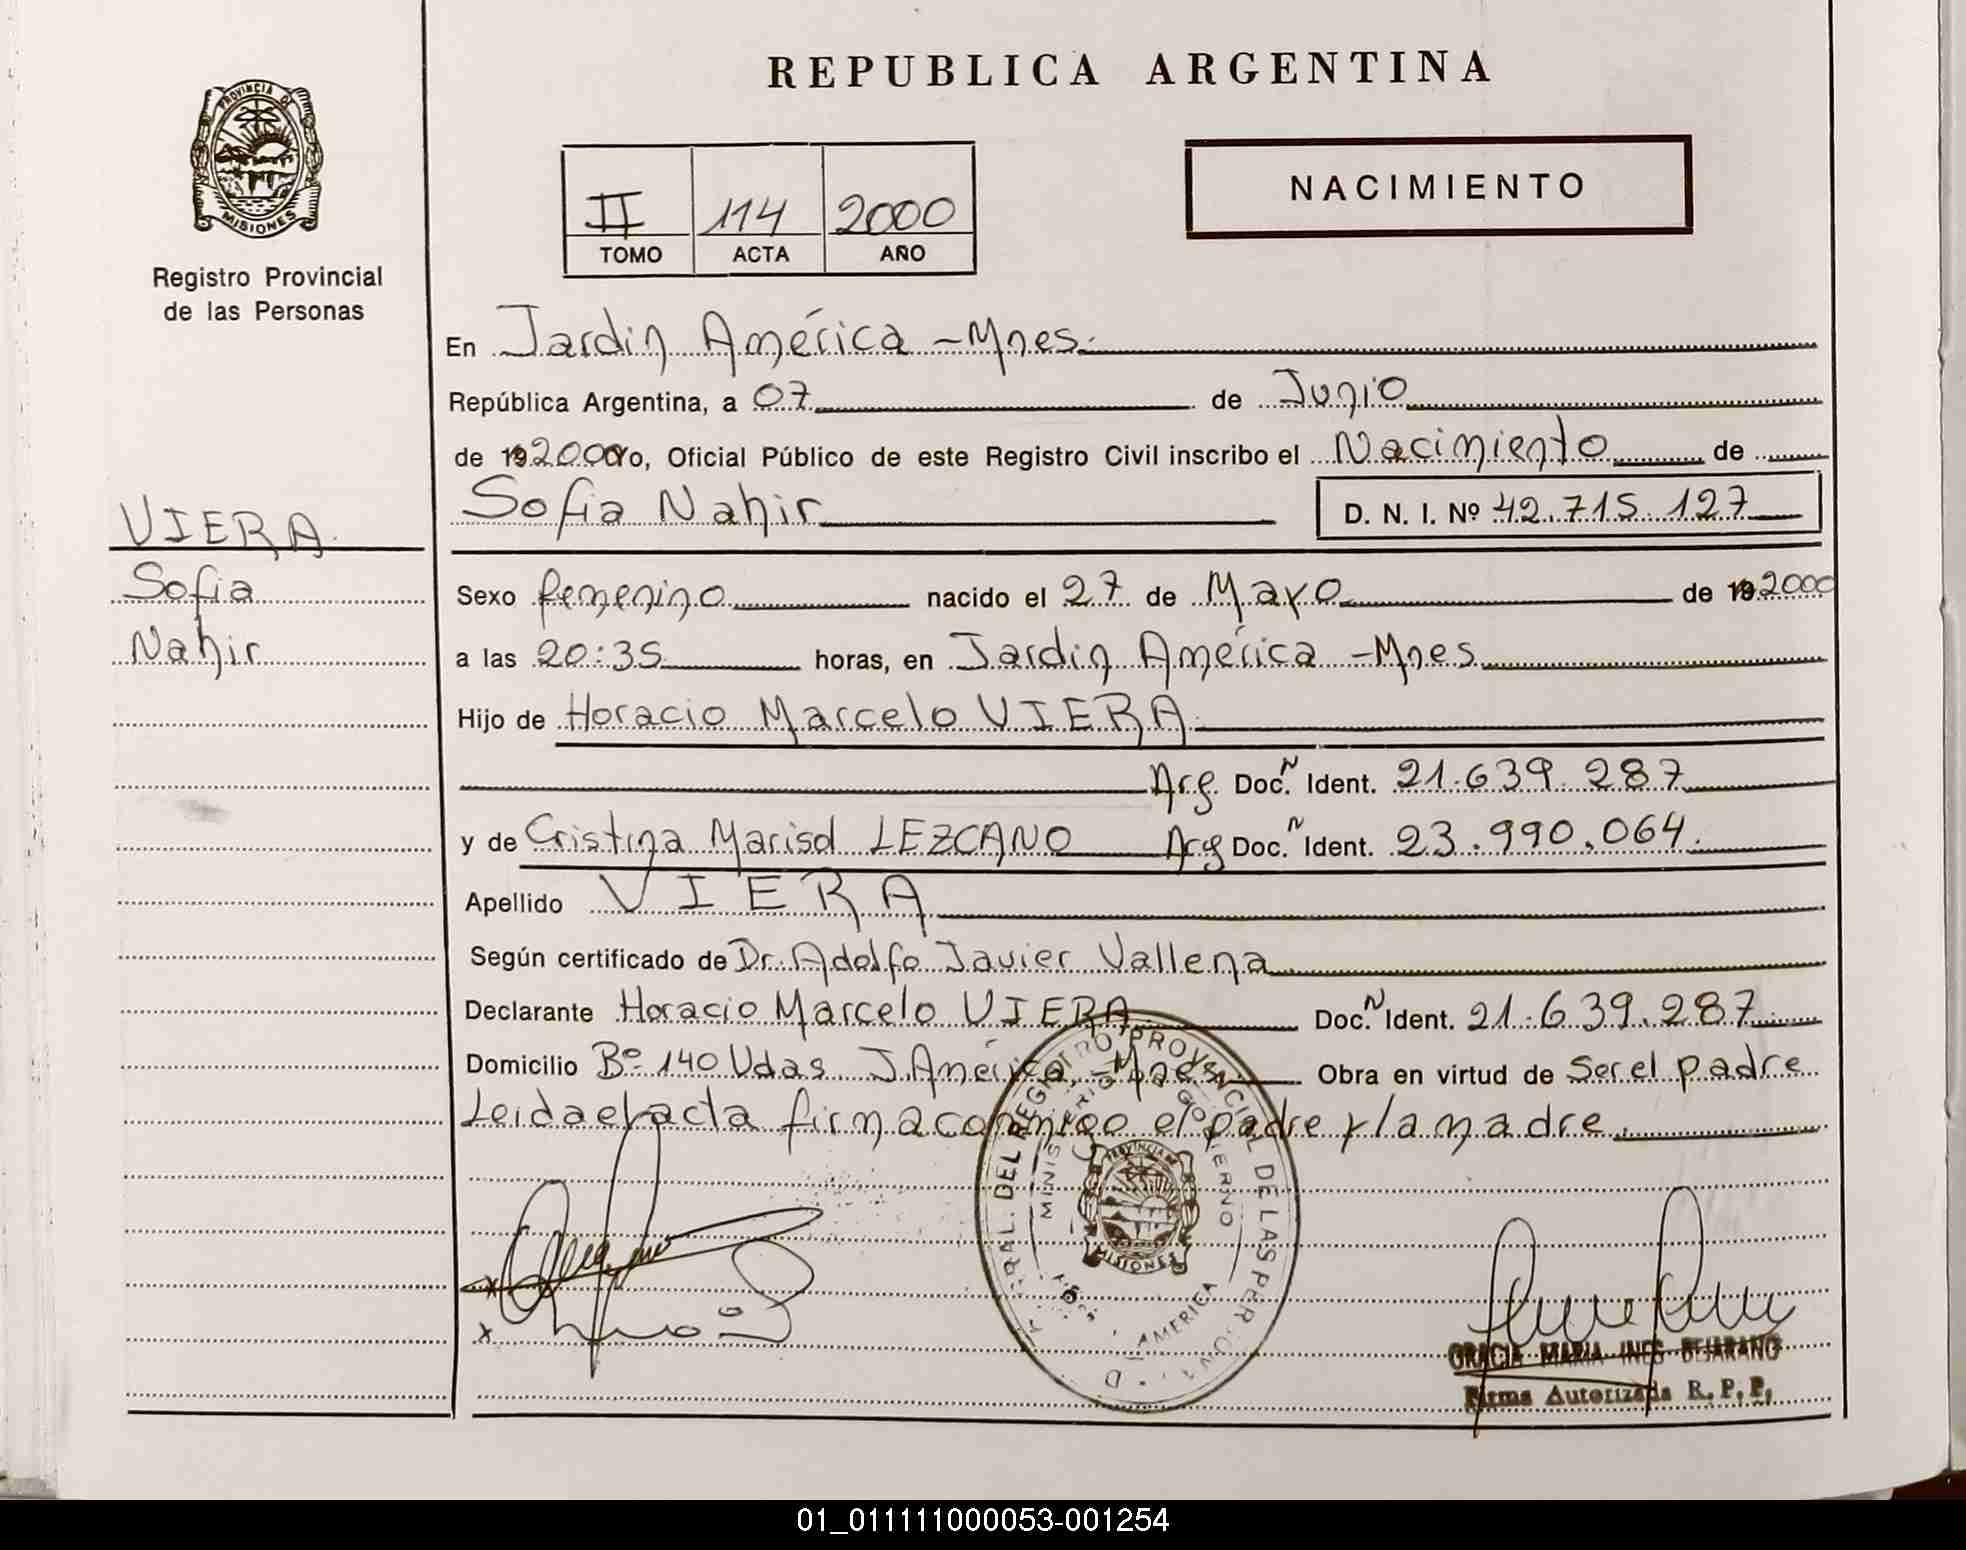 REPUBLICA ARGENTINA
PROVINCIA DE
MISIONES
Registro Provincial
de las Personas
II 114 2000
TOMO ACTA AÑO
NACIMIENTO
En Jardin América - Mnes.
República Argentina, a 07 de Junio
de 192000 yo, Oficial Público de este Registro Civil inscribo el Nacimiento de
Sofia Nahir D. N. I. Nº 42.715.127
VIERA
Sofia
Nahir
Sexo femenino nacido el 27 de Mayo de 192000
a las 20:35 horas, en Jardin América - Mnes
Hijo de Horacio Marcelo VIERA
Arg. Doc. N Ident. 21.639.287
y de Cristina Marisol LEZCANO Arg Doc. N Ident. 23.990.064.
Apellido VIERA
Según certificado de Dr. Adolfo Javier Vallena
Declarante Horacio Marcelo VIERA Doc. N Ident. 21.639.287
Domicilio Bº 140 Vdas. J. América, Mnes Obra en virtud de Ser el padre
Leida el acta firma conmigo el padre y la madre.
DEL REGISTRO PROVINCIAL DE LAS PERSONAS
MINISTERIO DE GOBIERNO
PROVINCIA DE
MISIONES
AMERICA
x
x
GRACIA MARIA INES BEJARANO
Firma Autorizada R. P. P.
01_011111000053-001254